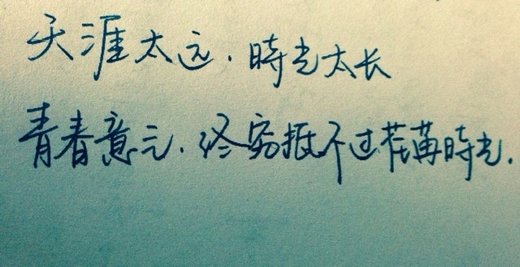 天涯太远.時光太长
青春意.终究抵不过荏苒時光.